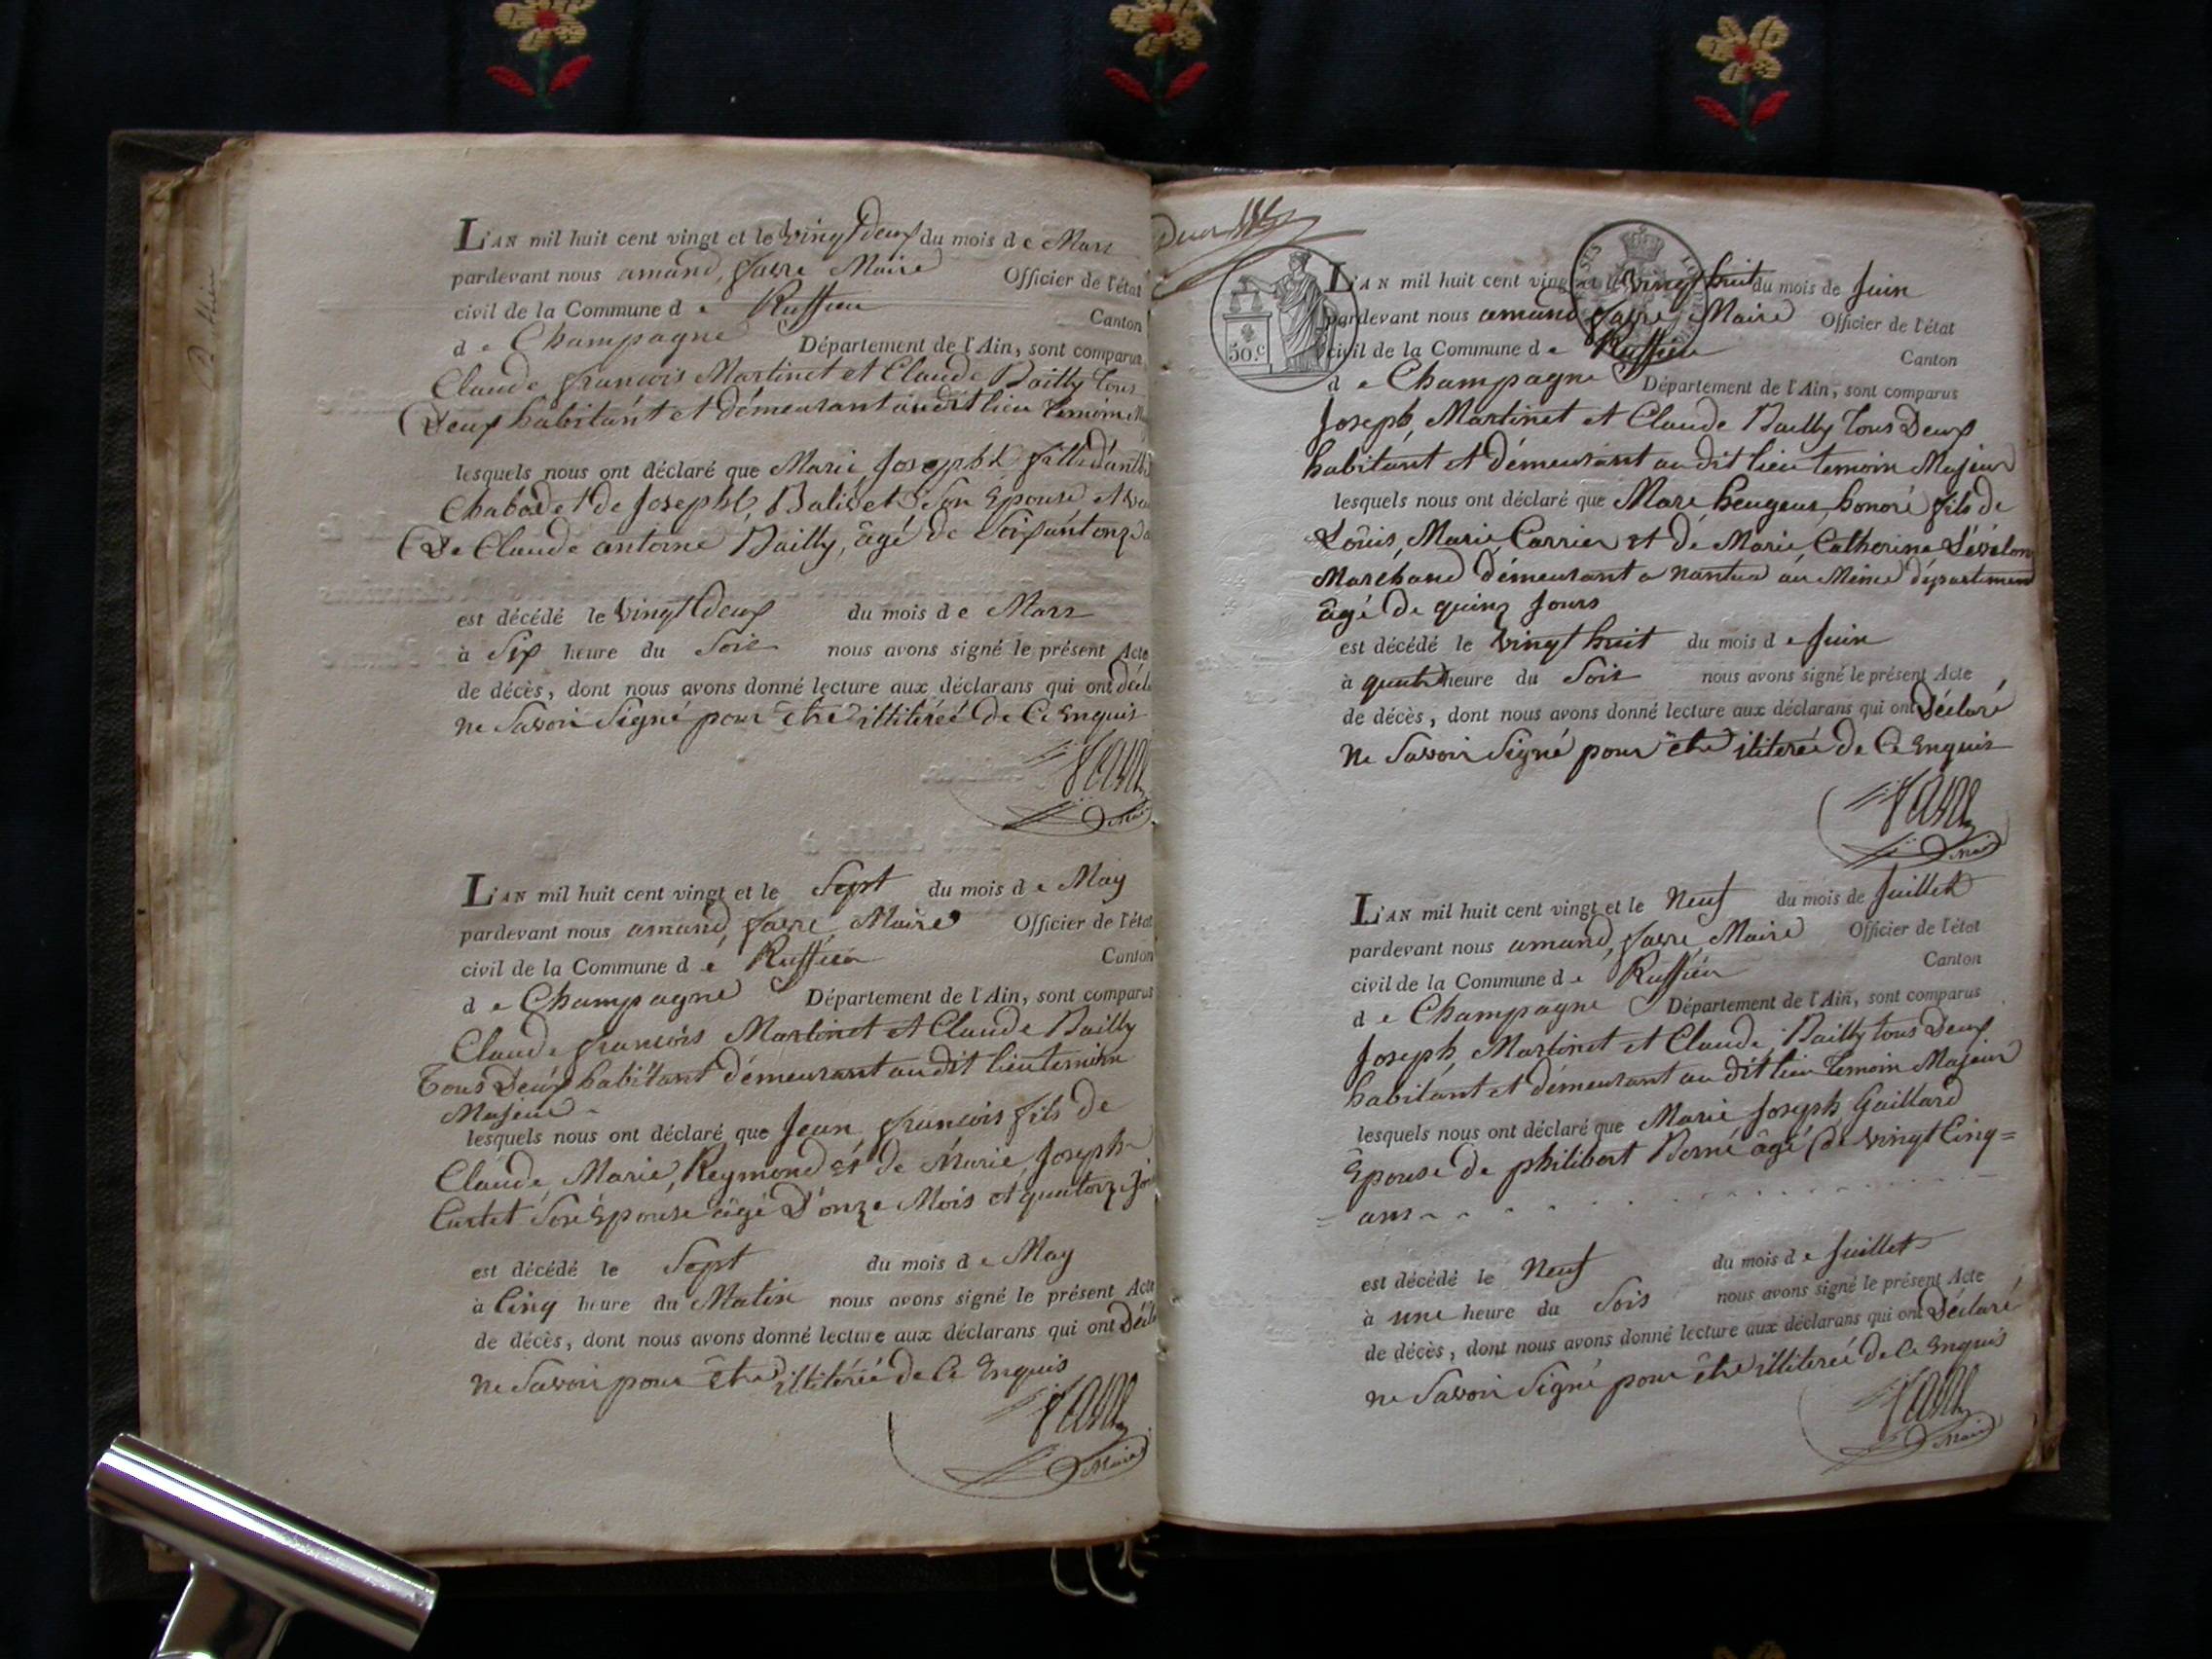 L'AN mil huit cent vingt et le vingt deux du mois de Mars
pardevant nous amand, favre Maire Officier de l'état
civil de la Commune de Ruffieu Canton
de Champagne Département de l'Ain, sont comparus
Claude francois Martinet et Claude Bailly tous
Deux habitant et démeurant audit lieu temoin
lesquels nous ont déclaré que Marie Josephte fille
Chabod et de Josephte, Son Epouse et
De Claude antoine Bailly, âgé de Soixantonze
est décédé le vingt deux du mois de Mars
à Six heure du Soir nous avons signé le présent Acte
de décès, dont nous avons donné lecture aux déclarans qui ont
ne Savoir Signé pour être illitéré de Ce Enquis
favre
Maire
L'AN mil huit cent vingt et le Sept du mois de May
pardevant nous amand, favre Maire Officier de l'état
civil de la Commune de Ruffieu Canton
de Champagne Département de l'Ain, sont comparus
Claude francois Martinet et Claude Bailly
Tous Deux habitant démeurant audit lieu temoin
Majeur
lesquels nous ont déclaré que Jean francois fils de
Claude, Marie, Reymond et de Marie Joseph
Curtet Son Epouse âgé D'onze Mois et quatorze
est décédé le Sept du mois de May
à Cinq heure du Matin nous avons signé le présent Acte
de décès, dont nous avons donné lecture aux déclarans qui ont
ne Savoir pour être illitéré de Ce Enquis
favre
Maire
50.C
L'AN mil huit cent vingt et le vingt huit du mois de Juin
pardevant nous amand favre Maire Officier de l'état
civil de la Commune de Ruffieu Canton
de Champagne Département de l'Ain, sont comparus
Joseph, Martinet et Claude Bailly tous Deux
habitant et démeurant au dit lieu temoin Majeur
lesquels nous ont déclaré que honoré fils de
Louis, Marie, Carrier et de Marie, Catherine
Marchand démeurant a nantua au Même départiment
âgé de quinz Jours
est décédé le vingt huit du mois de Juin
à quatre heure du Soir nous avons signé le présent Acte
de décès, dont nous avons donné lecture aux déclarans qui ont Déclaré
ne Savoir Signé pour être iliteré de Ce Enquis
favre
Maire
L'AN mil huit cent vingt et le Neuf du mois de Juillet
pardevant nous amand, favre Maire Officier de l'état
civil de la Commune de Ruffieu Canton
de Champagne Département de l'Ain, sont comparus
Joseph, Martinet et Claude, Bailly tous Deux
habitant et démeurant au dit lieu temoin Majeur
lesquels nous ont déclaré que Marie Joseph, Gaillard
Epouse de philibert Berné âgé de vingt Cinq=
= ans
est décédé le Neuf du mois de Juillet
à une heure du Soir nous avons signé le présent Acte
de décès, dont nous avons donné lecture aux déclarans qui ont Déclaré
ne Savoir Signé pour être illiteré de Ce Enquis
favre
Maire